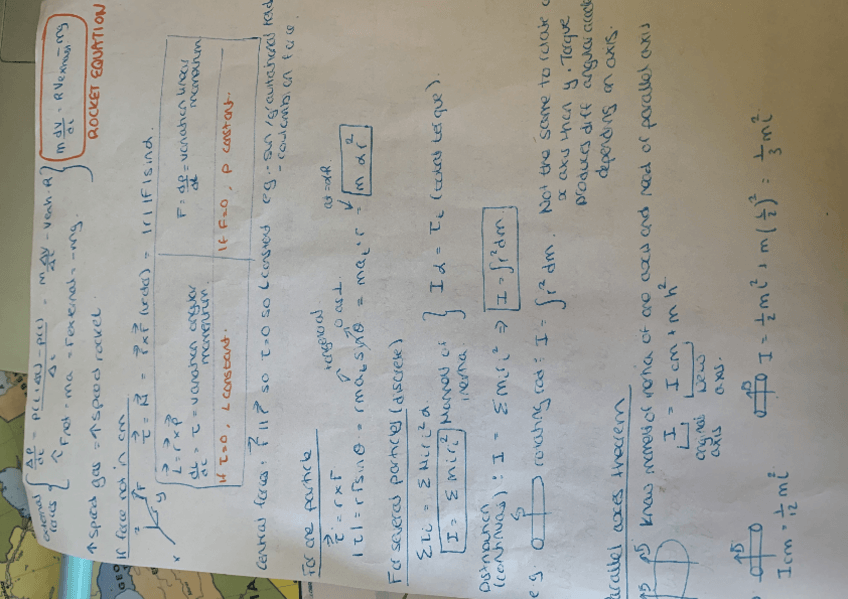 external forces { Δp/Δt = p(t+Δt) - p(t) / Δt = m dv/dt - Vexh·R } m dv/dt = R Vexhaust - mg
↑ Fnet = ma = Fexternal = -mg.
ROCKET EQUATION
↑ speed gas = ↑ speed rocket
If force not in cm
τ = M = r x F (vector) = |r| |F| sin α.
x
y
z
F
L = r x p
dL/dt = τ = variation angular momentum
If τ=0, L constant.
F = dp/dt = variation linear momentum
If F=0, P constant.
Central forces: r || F so τ=0 so L constant
eg: - sun/gravitational
- coulombian force.
For one particle
τ = r x F
tangencial
|τ| = rF sin θ = r m at sin θ = m at · r = m α r²
at = αR
For several particles (discrete)
Σ τi = Σ mi ri² α
I = Σ mi ri² Moment of inertia
} I α = τt (total torque).
Distribution (continuous): I = Σ mi ri² ⇒ I = ∫r² dm
eg
rotating rod: I = ∫r² dm.
Not the same to rotate
x axis then y. Torque
produces diff angular
depending on axis.
Parallel axes theorem
Know moment of inertia of one axis and need of parallel axis
I = Icm + mh²
new axis.
original axis
Icm = 1/12 ml²
I = 1/2 ml² + m(l/2)² = 1/3 ml².